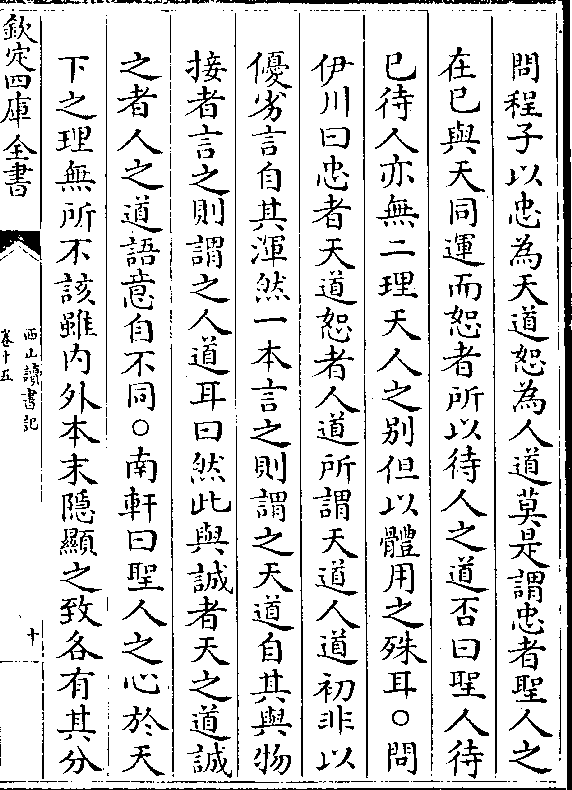 問程子以忠為天道恕為人道莫是謂忠者聖人之
在已與天同運而恕者所以待人之道否曰聖人待
已待人亦無二理天人之别但以體用之殊耳○問
伊川曰忠者天道恕者人道所謂天道人道初非以
優劣言自其渾然一本言之則謂之天道自其與物
接者言之則謂之人道耳曰然此與誠者天之道誠
之者人之道語意自不同○南軒曰聖人之心於天
下之理無所不該雖内外本末隱顯之致各有其分
欽定四庫全書
西山讀書記
卷十五
十